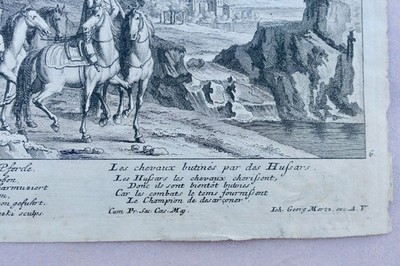 Pferde.
Les chevaux butinés par des Hussars.
Les Hussars les chevaux cherissent,
Donc ils sont bientôt butinés,
Car les combats le tems fournissent
Le Champion de desarçoner.
sculps.
Cum Pr. Sac. Cas. Maj.
Ioh. Georg Merz, exc. A. V.
6.